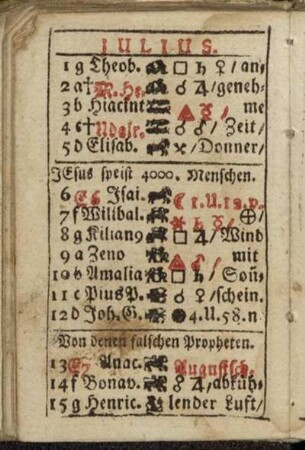 IULIUS.
1 g Theob. □ ♄ ♀/ an-
2 a † M. He. ☌ ♃/ geneh-
3 b Hiacknt △ ☿/ me
4 c † Udalr. ☌ ♂/ Zeit/
5 d Elisab. /Donner/
JEsus speist 4000. Menschen.
6 E6 Isai. ☾ 1. U. 18. p.
7 f Wilibal. ♄ ☿/ ⊕/
8 g Kilian9 □ ♃/ Wind
9 a Zeno △ ♂/ mit
10 b Amalia □ ♄/ Soñ-
11 c Pius P. ☌ ♀/ schein.
12 d Joh. G. ● 4. U. 58. n
Von denen falschen Propheten.
13 E7 Anac. Augustsch.
14 f Bonav. ☍ ♃/ abküh-
15 g Henric. lender Luft/